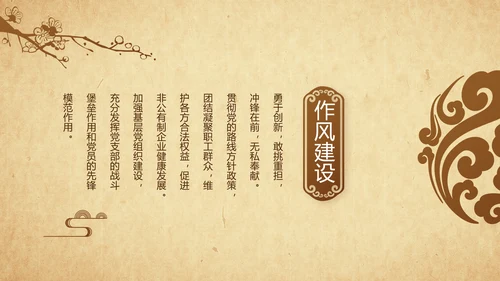 作风建设
勇于创新，敢挑重担，
冲锋在前，无私奉献。
贯彻党的路线方针政策，
团结凝聚职工群众，维
护各方合法权益，促进
非公有制企业健康发展。
加强基层党组织建设，
充分发挥党支部的战斗
堡垒作用和党员的先锋
模范作用。